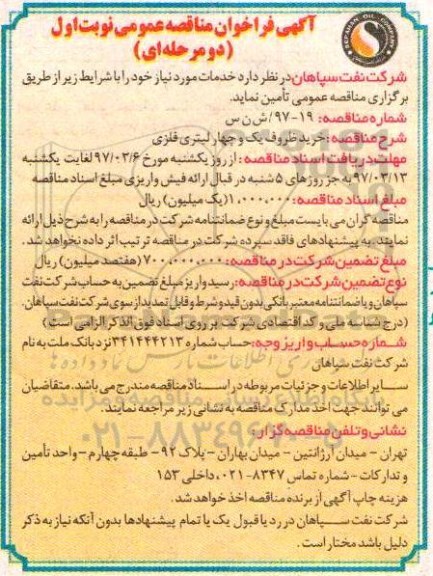 آگهی فراخوان مناقصه عمومی نوبت اول
(دو مرحله‌ای)
شرکت نفت سپاهان در نظر دارد خدمات مورد نیاز خود را با شرایط زیر از طریق
برگزاری مناقصه عمومی تأمین نماید.
شماره مناقصه: ۱۹-۹۷/ش ن س
شرح مناقصه: خرید ظروف یک و چهار لیتری فلزی
مهلت دریافت اسناد مناقصه: از روز یکشنبه مورخ ۹۷/۰۳/۶ لغایت یکشنبه
۹۷/۰۳/۱۳ به جز روزهای ۵ شنبه در قبال ارائه فیش واریزی مبلغ اسناد مناقصه
مبلغ اسناد مناقصه: ۱,۰۰۰,۰۰۰ (یک میلیون) ریال
مناقصه گران می بایست مبلغ و نوع ضمانتنامه شرکت در مناقصه را به شرح ذیل ارائه
نمایند. به پیشنهادهای فاقد سپرده شرکت در مناقصه ترتیب اثر داده نخواهد شد.
مبلغ تضمین شرکت در مناقصه: ۷۰۰,۰۰۰,۰۰۰ (هفتصد میلیون) ریال
نوع تضمین شرکت در مناقصه: رسید واریز مبلغ تضمین به حساب شرکت نفت
سپاهان و یا ضمانتنامه معتبر بانکی بدون قید و شرط و قابل تمدید از سوی شرکت نفت سپاهان.
(درج شناسه ملی و کد اقتصادی شرکت بر روی اسناد فوق الذکر الزامی است)
شماره حساب واریز وجه: حساب شماره ۳۴۱۴۴۴۲۱۳ نزد بانک ملت به نام
شرکت نفت سپاهان
سایر اطلاعات و جزئیات مربوطه در اسناد مناقصه مندرج می باشد. متقاضیان
می توانند جهت اخذ مدارک مناقصه به نشانی زیر مراجعه نمایند.
نشانی و تلفن مناقصه گزار:
تهران - میدان آرژانتین - میدان بهاران - پلاک ۹۲ - طبقه چهارم - واحد تأمین
و تدارکات - شماره تماس ۸۳۴۷-۰۲۱، داخلی ۱۵۳
هزینه چاپ آگهی از برنده مناقصه اخذ خواهد شد.
شرکت نفت سپاهان در رد یا قبول یک یا تمام پیشنهادها بدون آنکه نیاز به ذکر
دلیل باشد مختار است.